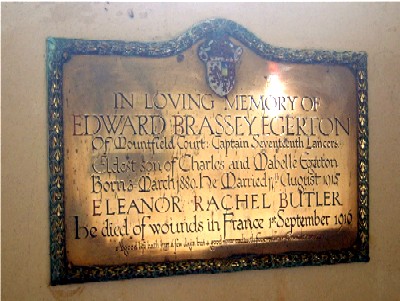 IN LOVING MEMORY OF
EDWARD BRASSEY EGERTON
Of Mountfield Court: Captain Seventeenth Lancers
Eldest son of Charles and Mabelle Egerton
Born 3 March 1889. He Married 11th August 1915
ELEANOR RACHEL BUTLER
He died of wounds in France 1st September 1916
a good life hath but a few days but a good name